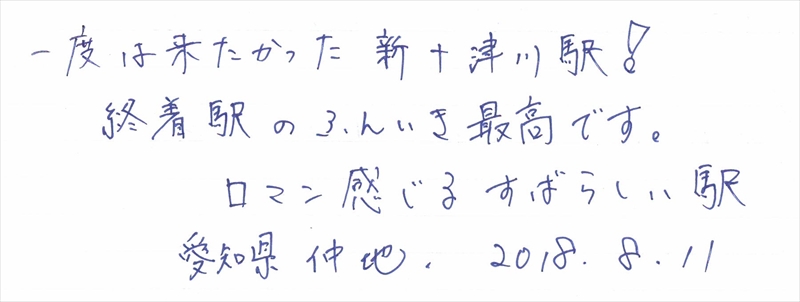 一度は来たかった 新十津川駅!
終着駅のふんいき最高です。
ロマン感じる すばらしい駅
愛知県 仲地. 2018.8.11